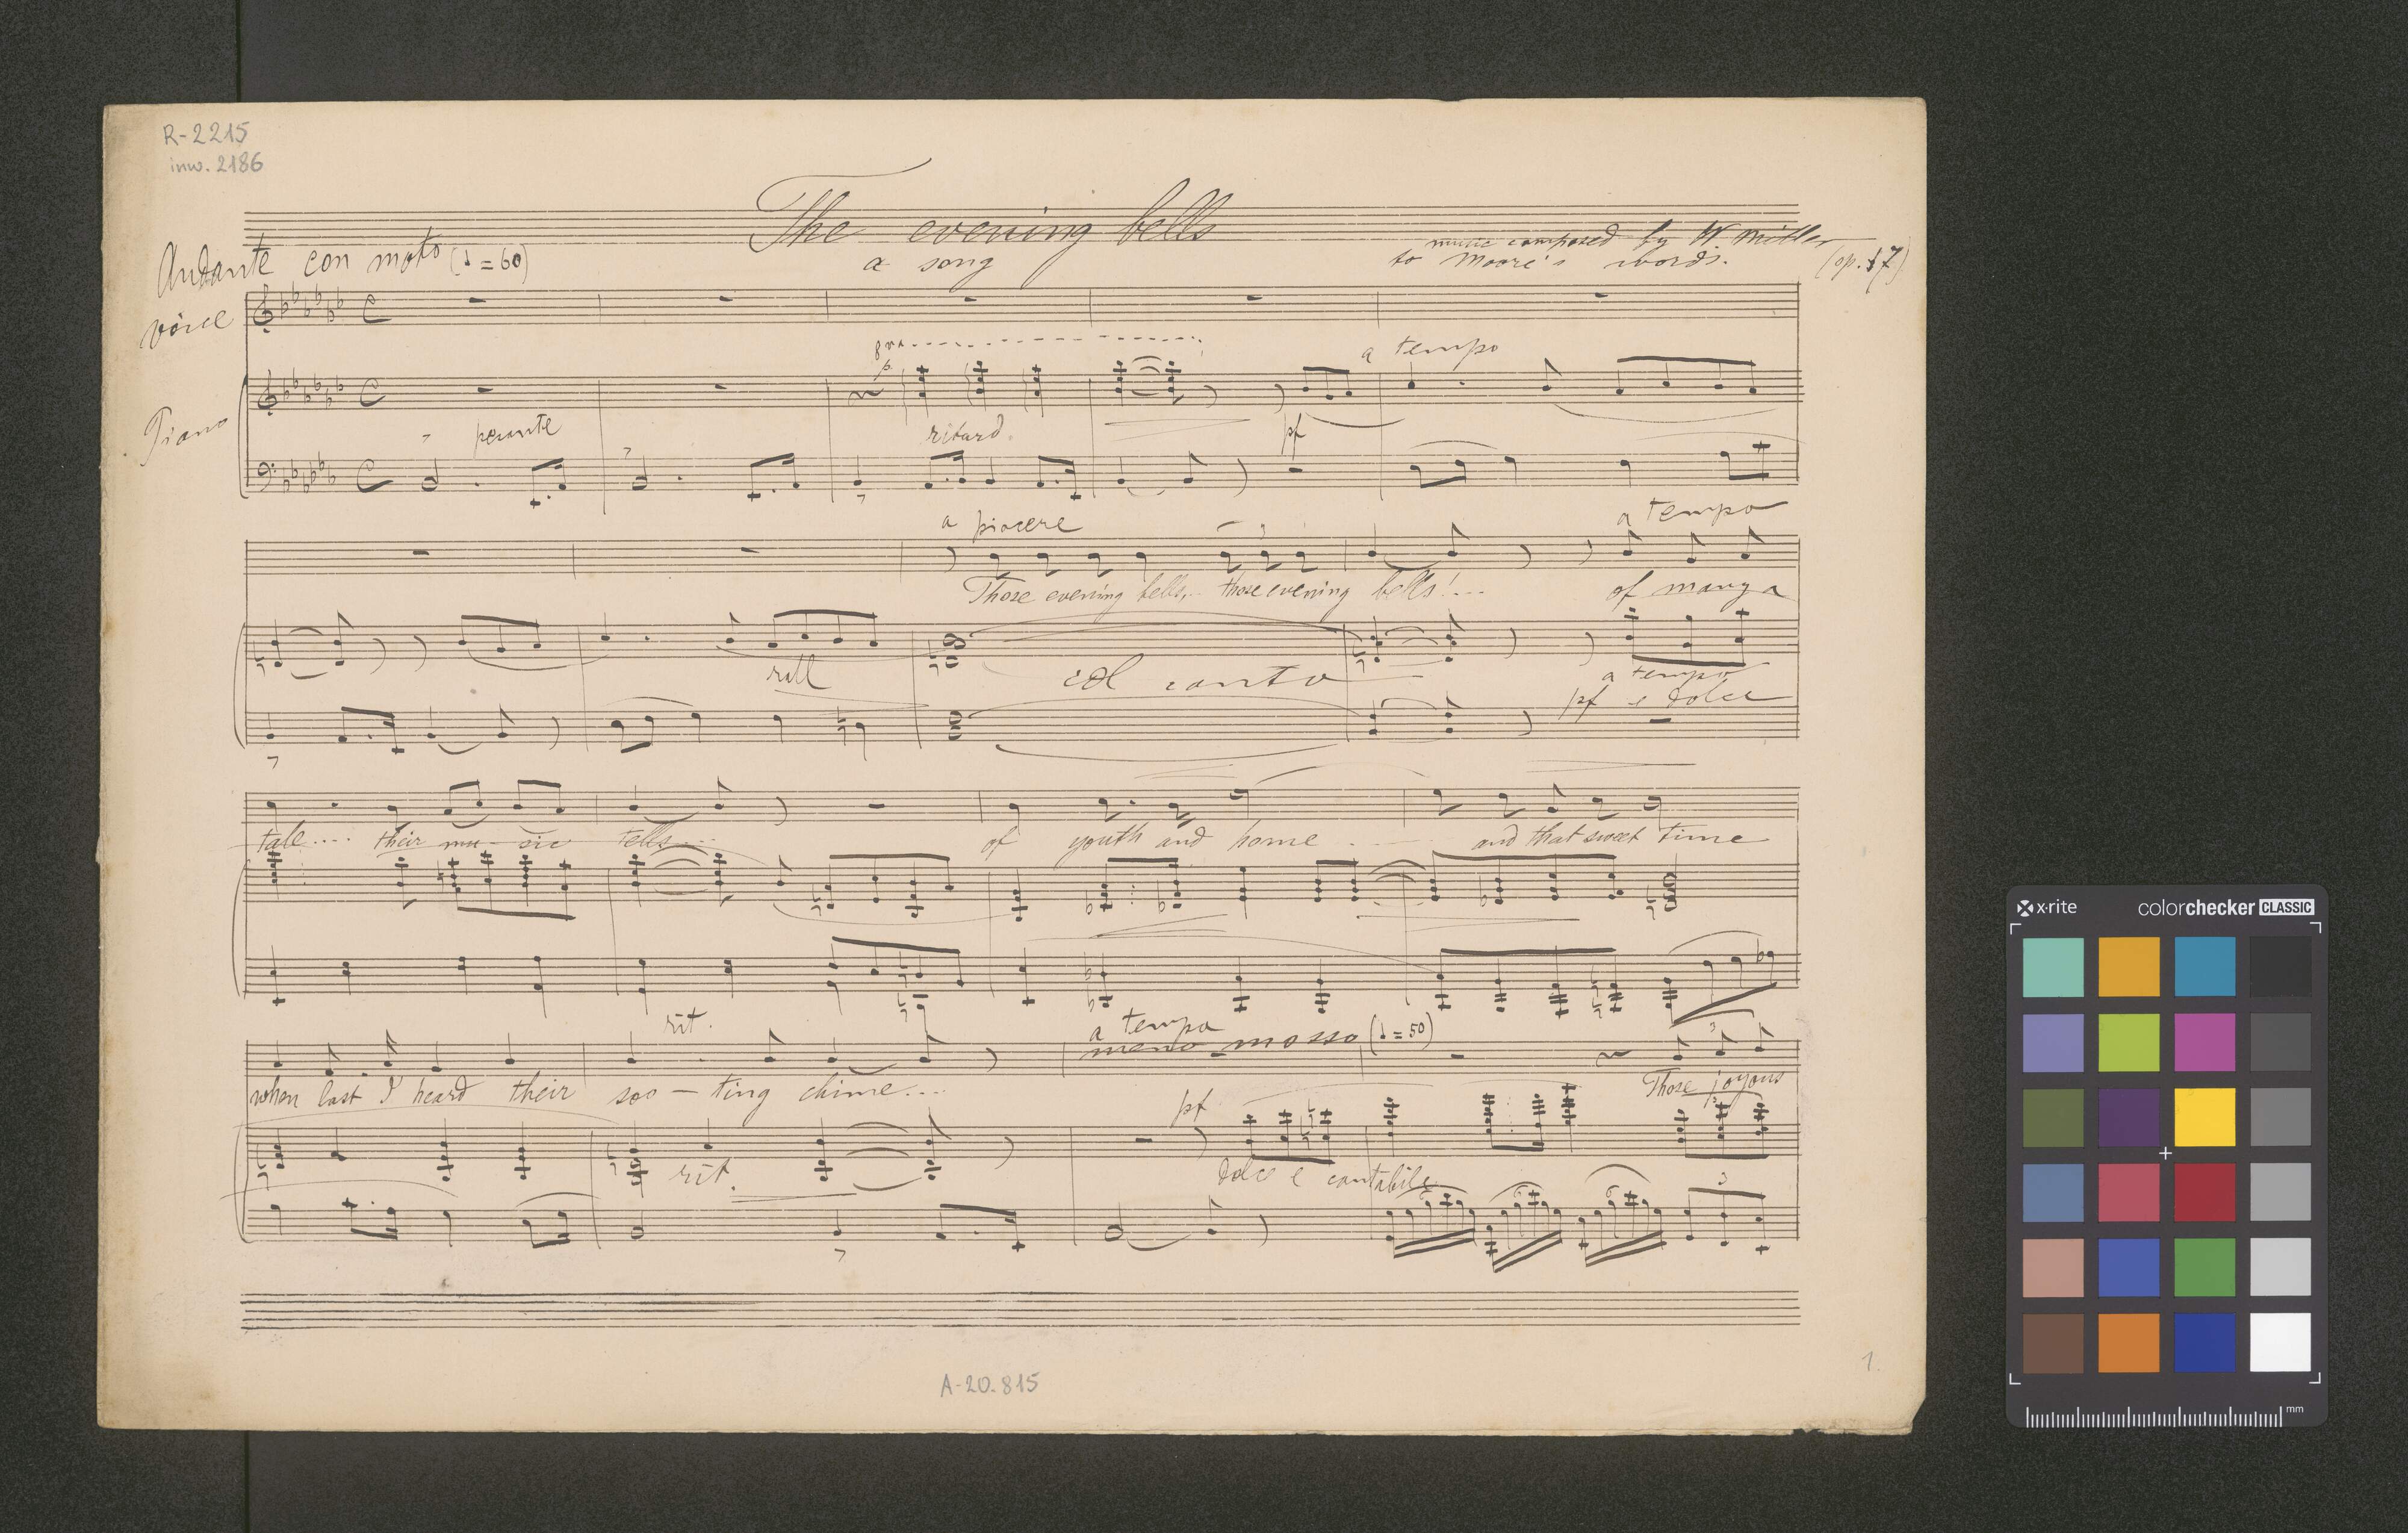 R-2215
inw. 2186
The evening bells
a song
music composed by W. Miller
to Moore's words.
(op. 17)
Andante con moto (♩ = 60)
voice
Piano
8va
p.
a tempo
pesante
ritard.
pf
a piacere
a tempo
Those evening bells,.. those evening bells!... of many a
rall
col canto
a tempo
pf e dolce
tale.... their mu - sic tells... of youth and home .... and that sweet time
rit.
a tempo
meno mosso (♩ = 50)
3
when last I heard their soo - ting chime... Those joyous
pf
rit.
dolce e cantabile
6 6 6 3
A-20.815
1.
x·rite colorchecker CLASSIC
mm